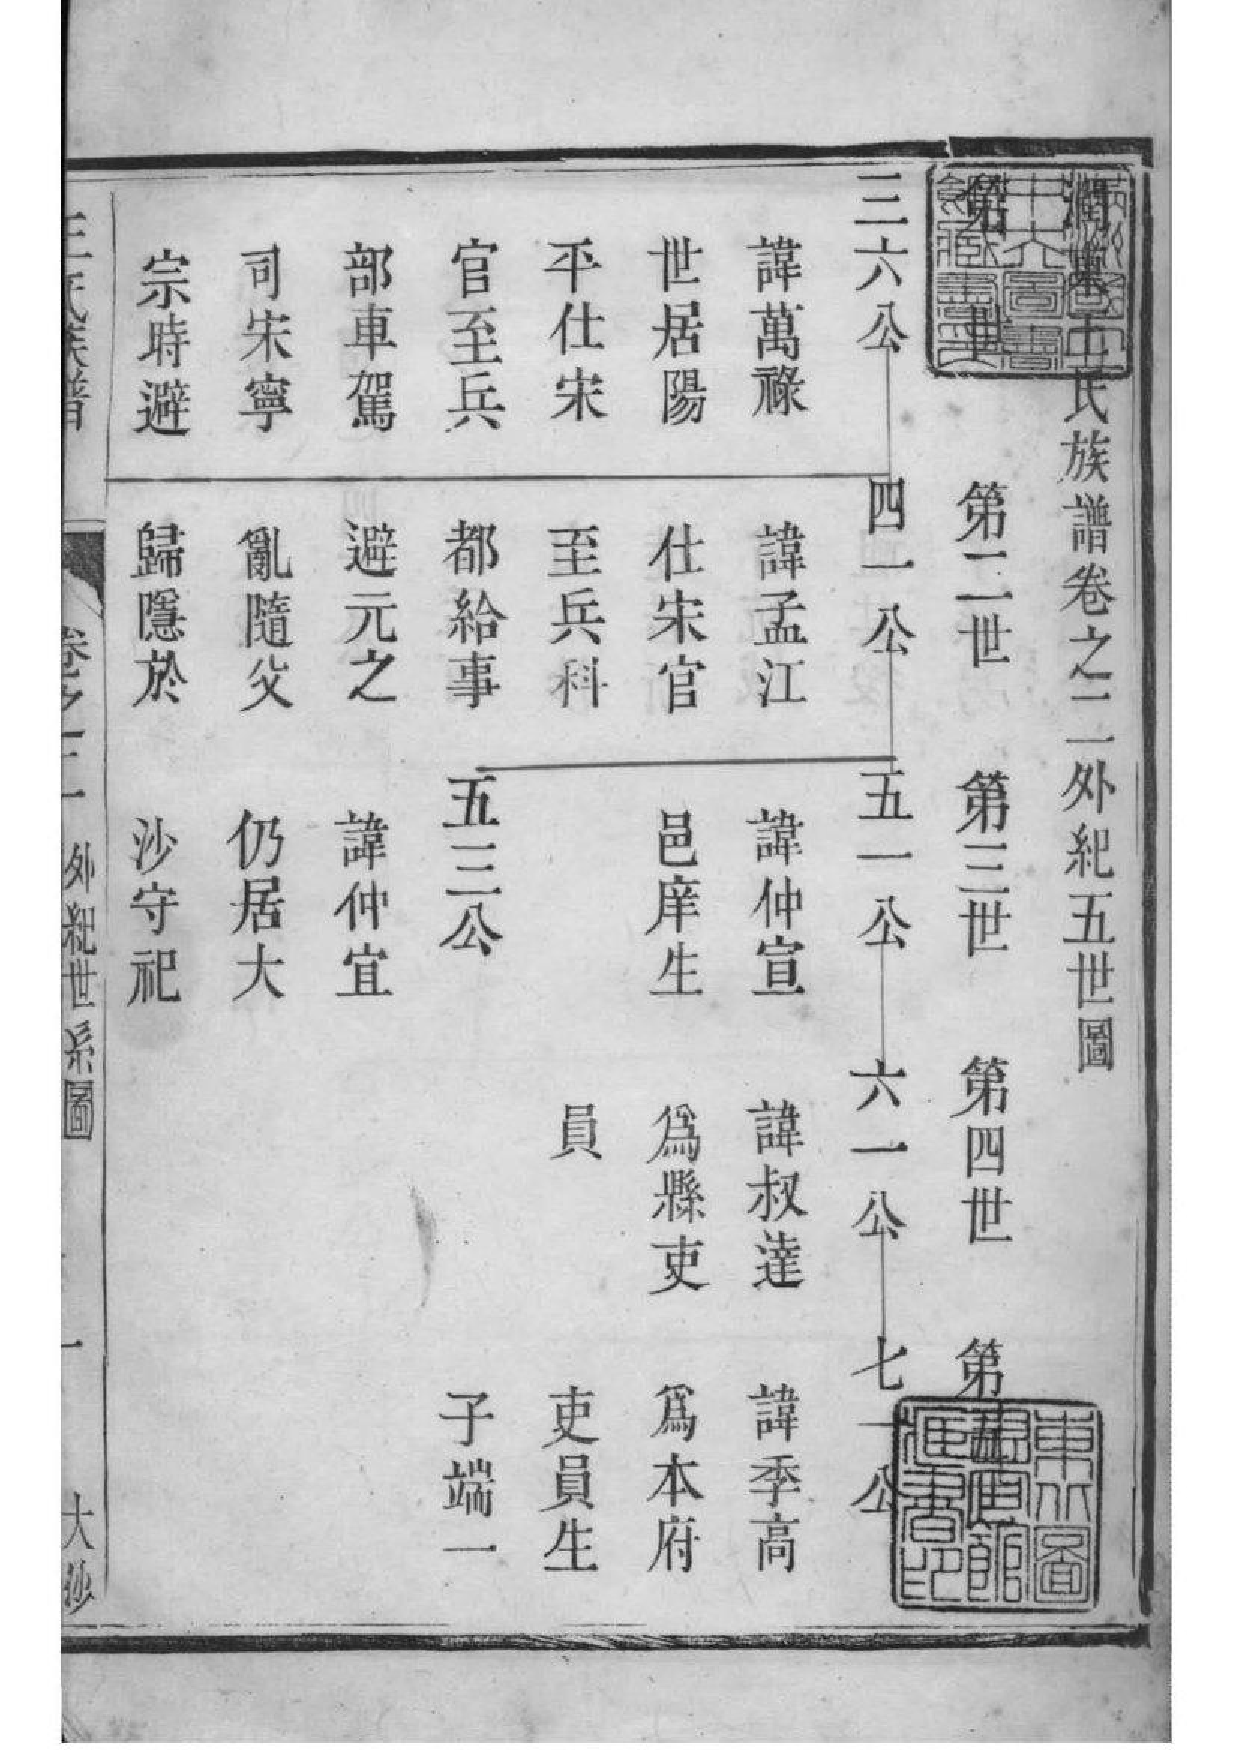 王氏族譜卷之二外紀五世圖
第 世 第二世 第三世 第四世 第
三六公 四一公 五一公 六一公 七一公
諱萬祿 諱孟江 諱仲宣 諱叔達 諱季高
世居陽 仕宋官 邑庠生 爲縣吏 爲本府
平仕宋 至兵科 員 吏員生
官至兵 都給事 五三公 子端一
部車駕 避元之 諱仲宜
司宋寧 亂隨父 仍居大
宗時避 歸隱於 沙守祀
王氏族譜 卷之二 外紀世系圖 一 大沙